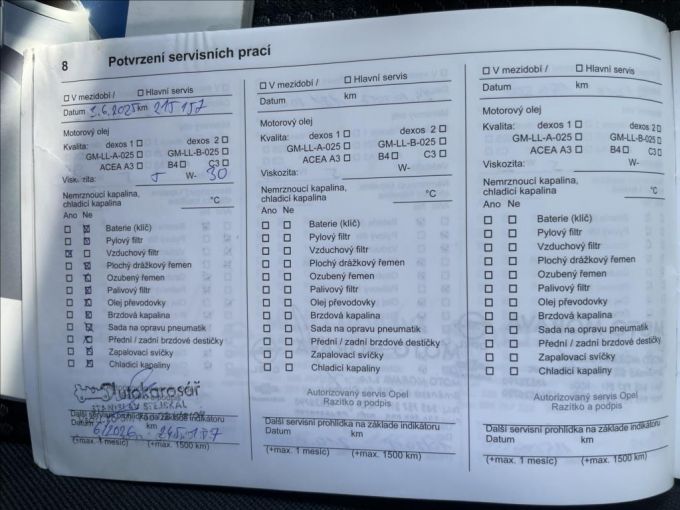 8 Potvrzení servisních prací
☐ V mezidobí / ☐ Hlavní servis
Datum 3.6.2025 km 215 157
Motorový olej
Kvalita: dexos 1 ☐ dexos 2 ☐
GM-LL-A-025 ☐ GM-LL-B-025 ☐
ACEA A3 ☐ B4 ☐ C3 ☐
Viskozita: 5 W- 30
Nemrznoucí kapalina,
chladicí kapalina °C
Ano Ne
☐ ☒ Baterie (klíč)
☐ ☒ Pylový filtr
☒ ☐ Vzduchový filtr
☐ ☒ Plochý drážkový řemen
☐ ☒ Ozubený řemen
☐ ☒ Palivový filtr
☐ ☒ Olej převodovky
☐ ☒ Brzdová kapalina
☐ ☒ Sada na opravu pneumatik
☐ ☒ Přední / zadní brzdové destičky
☐ ☒ Zapalovací svíčky
☐ ☒ Chladicí kapaliny
Autokarosář
STANISLAV STEJSKAL
Další servisní prohlídka na základě indikátoru
Datum km
6/2026
(+max. 1 měsíc) (+max. 1500 km)
☐ V mezidobí / ☐ Hlavní servis
Datum km
Motorový olej
Kvalita: dexos 1 ☐ dexos 2 ☐
GM-LL-A-025 ☐ GM-LL-B-025 ☐
ACEA A3 ☐ B4 ☐ C3 ☐
Viskozita: W-
Nemrznoucí kapalina,
chladicí kapalina °C
Ano Ne
☐ ☐ Baterie (klíč)
☐ ☐ Pylový filtr
☐ ☐ Vzduchový filtr
☐ ☐ Plochý drážkový řemen
☐ ☐ Ozubený řemen
☐ ☐ Palivový filtr
☐ ☐ Olej převodovky
☐ ☐ Brzdová kapalina
☐ ☐ Sada na opravu pneumatik
☐ ☐ Přední / zadní brzdové destičky
☐ ☐ Zapalovací svíčky
☐ ☐ Chladicí kapaliny
Autorizovaný servis Opel
Razítko a podpis
Další servisní prohlídka na základe indikátoru
Datum km
(+max. 1 měsíc) (+max. 1500 km)
☐ V mezidobí / ☐ Hlavní servis
Datum km
Motorový olej
Kvalita: dexos 1 ☐ dexos 2 ☐
GM-LL-A-025 ☐ GM-LL-B-025 ☐
ACEA A3 ☐ B4 ☐ C3 ☐
Viskozita: W-
Nemrznoucí kapalina,
chladicí kapalina °C
Ano Ne
☐ ☐ Baterie (klíč)
☐ ☐ Pylový filtr
☐ ☐ Vzduchový filtr
☐ ☐ Plochý drážkový řemen
☐ ☐ Ozubený řemen
☐ ☐ Palivový filtr
☐ ☐ Olej převodovky
☐ ☐ Brzdová kapalina
☐ ☐ Sada na opravu pneumatik
☐ ☐ Přední / zadní brzdové destičky
☐ ☐ Zapalovací svíčky
☐ ☐ Chladicí kapaliny
Autorizovaný servis Opel
Razítko a podpis
Další servisní prohlídka na základe indikátoru
Datum km
(+max. 1 měsíc) (+max. 1500 km)